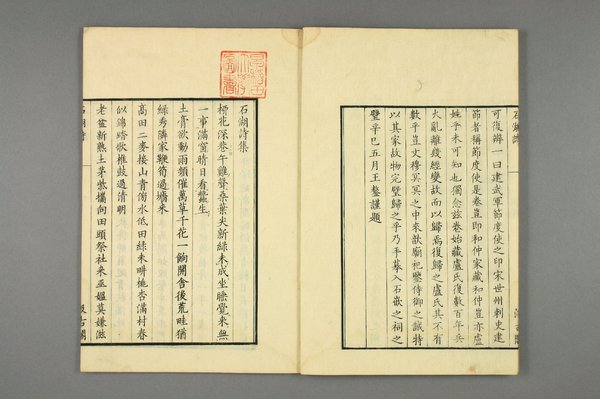 可復辨一曰建武軍節度使之印宋世州刺史建
節者稱節度使是卷豈即和仲家藏和仲豈亦盧
姓乎未可知也獨念玆卷始藏盧氏復數百年兵
火亂離幾經變故而以歸焉復歸之盧氏其不有
數乎豈文穆冥冥之中來歆廟祀鑒侍御之誠特
以其家故物完璧歸之乎乃手摹入石嵌之祠之
壁辛巳五月王鏊謹題
石湖詩集
柳花深巷午雞聲桑葉尖新綠未成坐睡覺來無
一事滿窗晴日看蠶生
土膏欲動雨頻催萬草千花一餉開舍後荒畦猶
綠秀隣家鞭筍過墻來
高田二麥接山青傍水低田綠未畊桃杏滿村春
似錦踏歌椎鼓過清明
老盆新熟土茅柴攜向田頭祭社來巫媼莫嫌滋
石湖詩
汲古閣